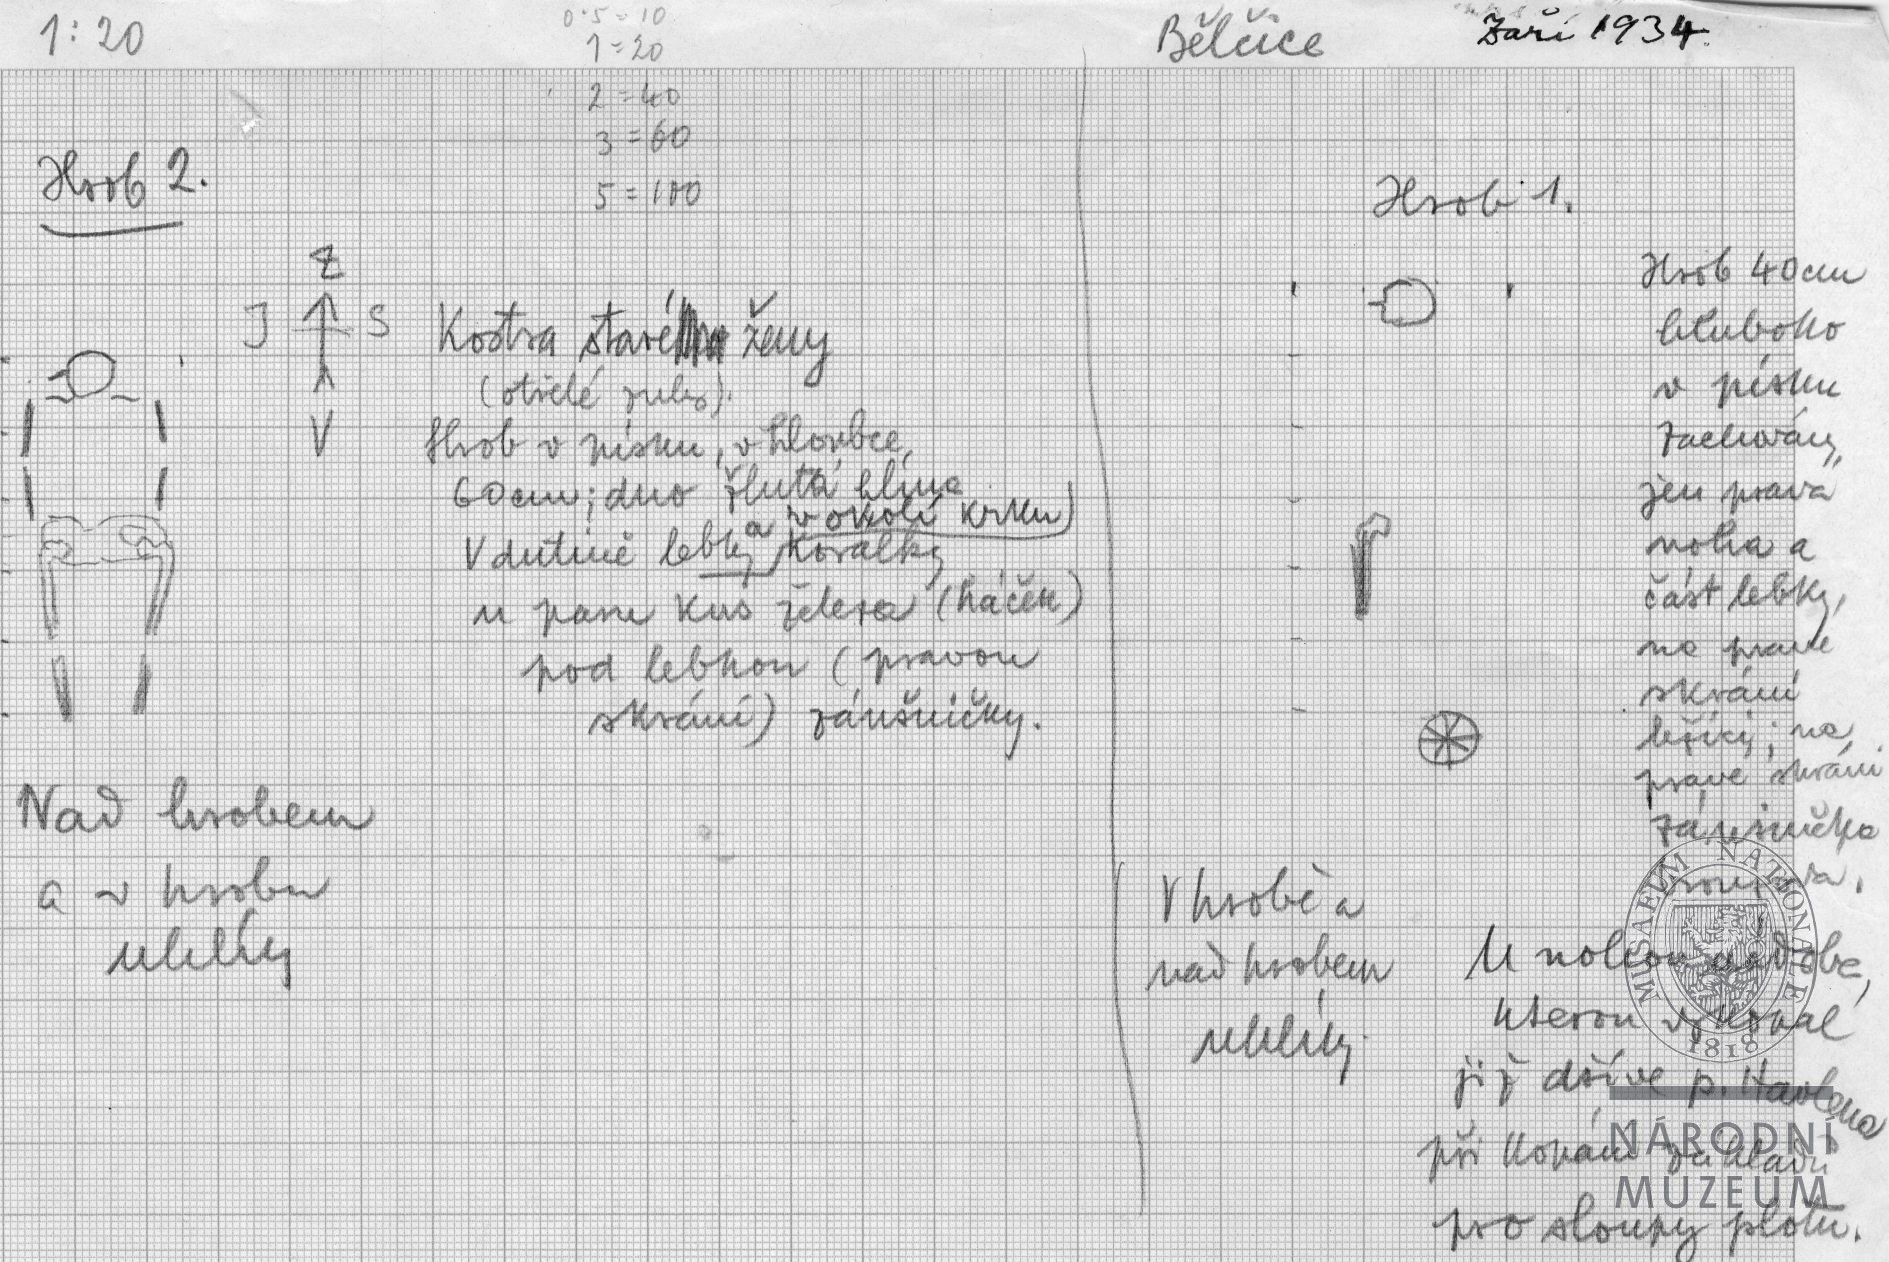 1:20
0·5 = 10
1 = 20
2 = 40
3 = 60
5 = 100
Bělčice
Září 1934.
Hrob 2.
Z
J S
V
Kostra staré ženy
(otřelé zuby).
Hrob v písku, v hloubce
60cm; dno žlutá hlína
V dutině lebky a v okolí krku korálky
u pasu kus železa (háček)
pod lebkou (pravou
skrání) záušničky.
Nad hrobem
a v hrobu
uhlíky
Hrob 1.
Hrob 40cm
hluboko
v písku
zachovány
jen pravá
noha a
část lebky,
na pravé
skrání
ležící; na
pravé skrání
záušnička
V hrobě a
nad hrobem
uhlíky.
U nohou nádoba,
kterou vykopal
již dříve p. Havlena
při kopání základů
pro sloupy plotu.
MUSAEUM NATIONALE
1818
NÁRODNÍ
MUZEUM